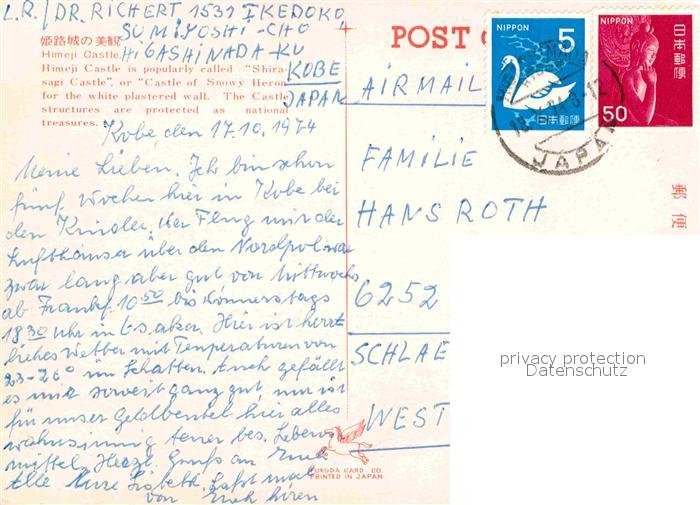 L.R./DR. RICHERT 1531 IKEDOKO
SUMIYOSHI-CHO
HIGASHINADA-KU
KOBE
JAPAN
姫路城の美観
Himeji Castle.
Himeji Castle is popularly called "Shira-
sagi Castle", or "Castle of Snowy Heron"
for the white plastered wall. The Castle
structures are protected as national
treasures.
Kobe, den 17.10.1974
Meine Lieben. Ich bin schon
fünf Wochen hier in Kobe bei
den Kinder. Der Flug mit der
Lufthansa über den Nordpol war
zwar lang aber gut von Mittwochs
ab Frankf. 10 50 bis Donnerstags
18.30 Uhr in Osaka. Hier ist herr
liches Wetter mit Temperaturen von
23-26° im Schatten. Auch gefällt
es mir soweit ganz gut, nur ist
für unser Geldbeutel hier alles
wahnsinnig teuer bes. Lebens
mittel. Herzl. Gruß an Euch
Alle Eure Lisbeth. Laßt mal
von Euch hören
POST C
AIRMAIL
FAMILIE
HANS ROTH
6252
SCHLAE
WEST
NIPPON
5
日本郵便
NIPPON
日本郵便
50
JAPAN
郵便
FUKUDA CARD CO.
PRINTED IN JAPAN
privacy protection
Datenschutz